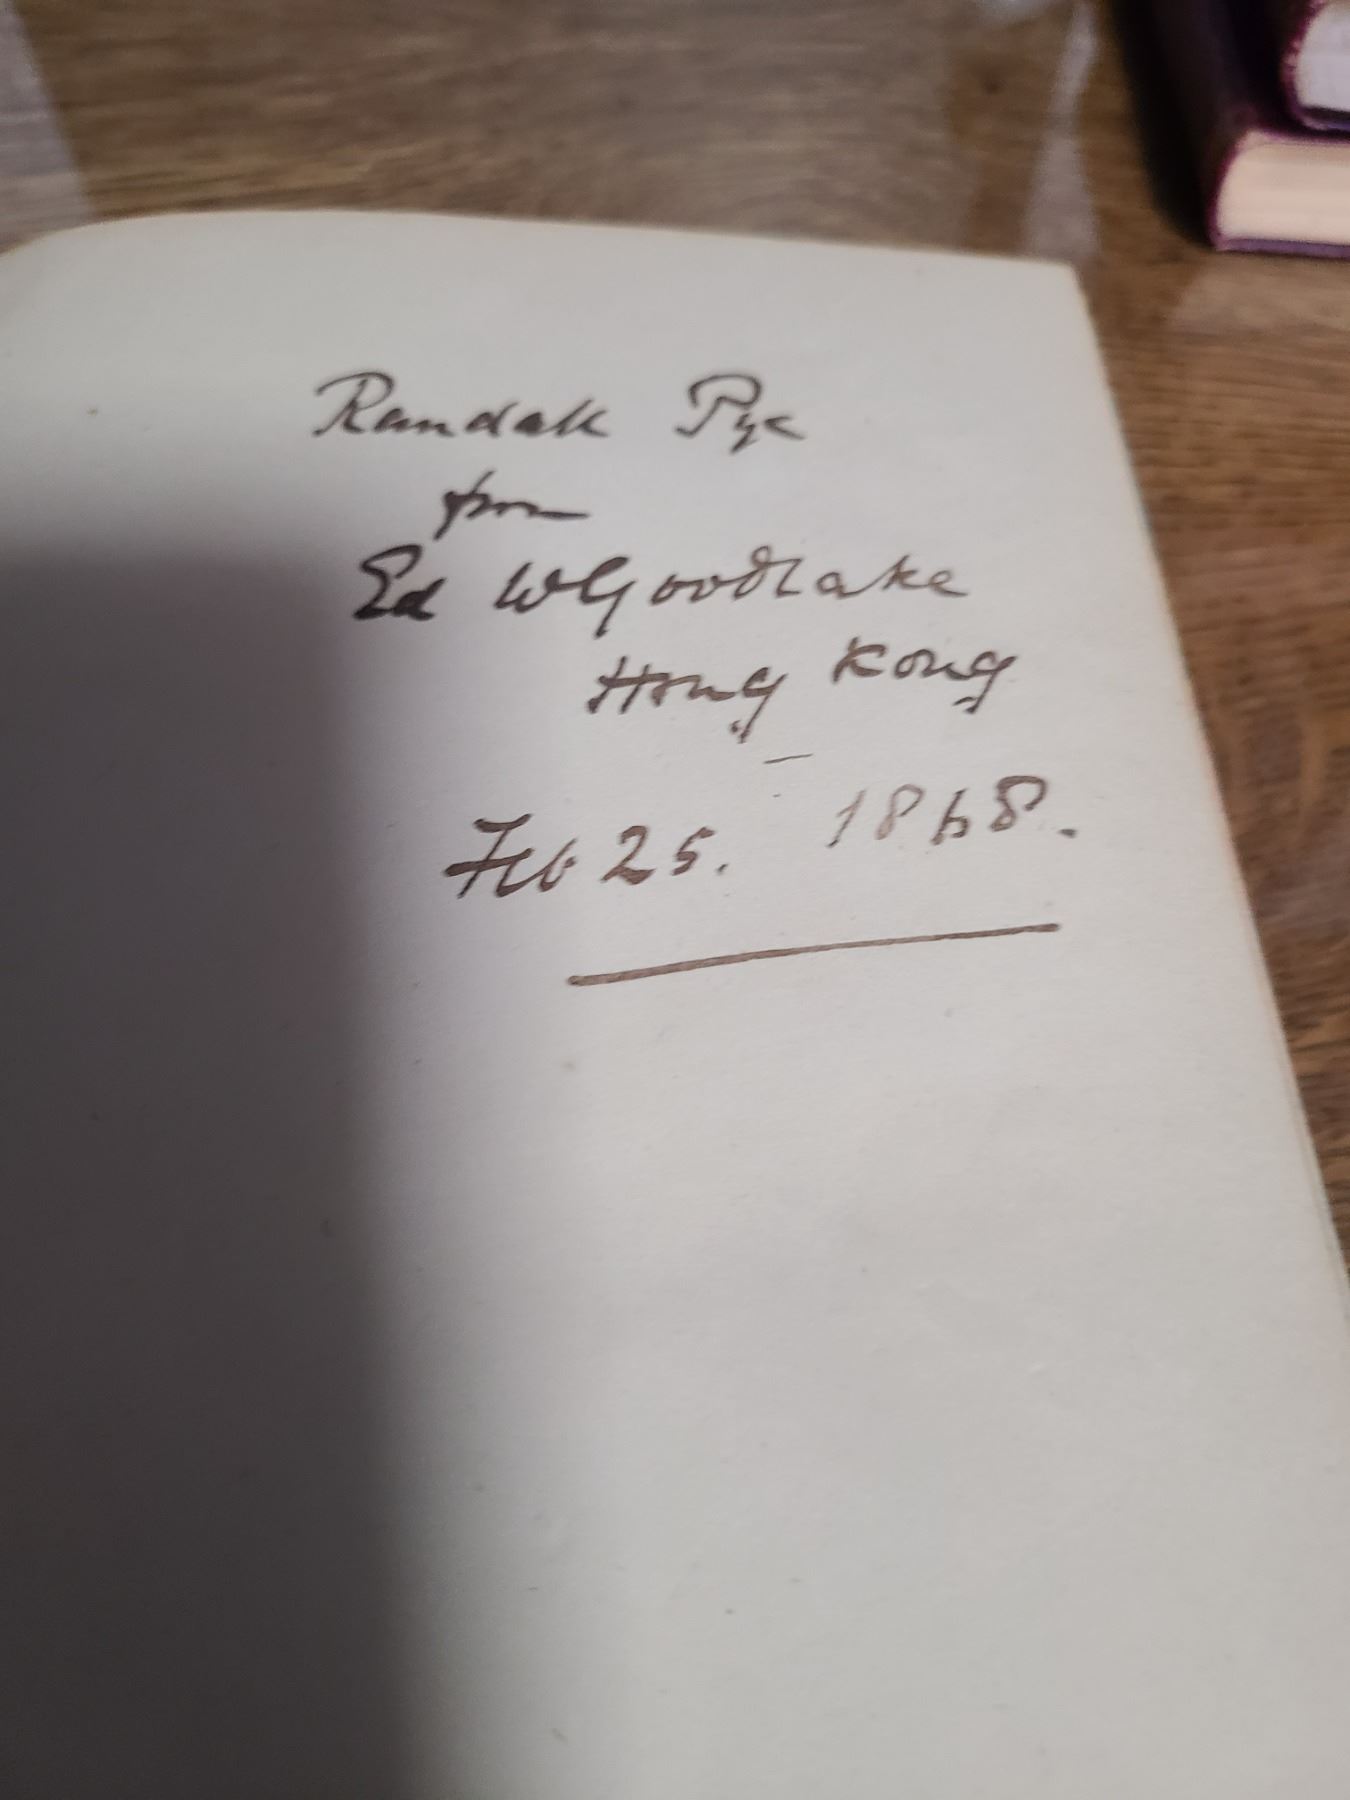 Randall Pye
from
Ed W Goodlake
Hong Kong
Feb 25. 1868.